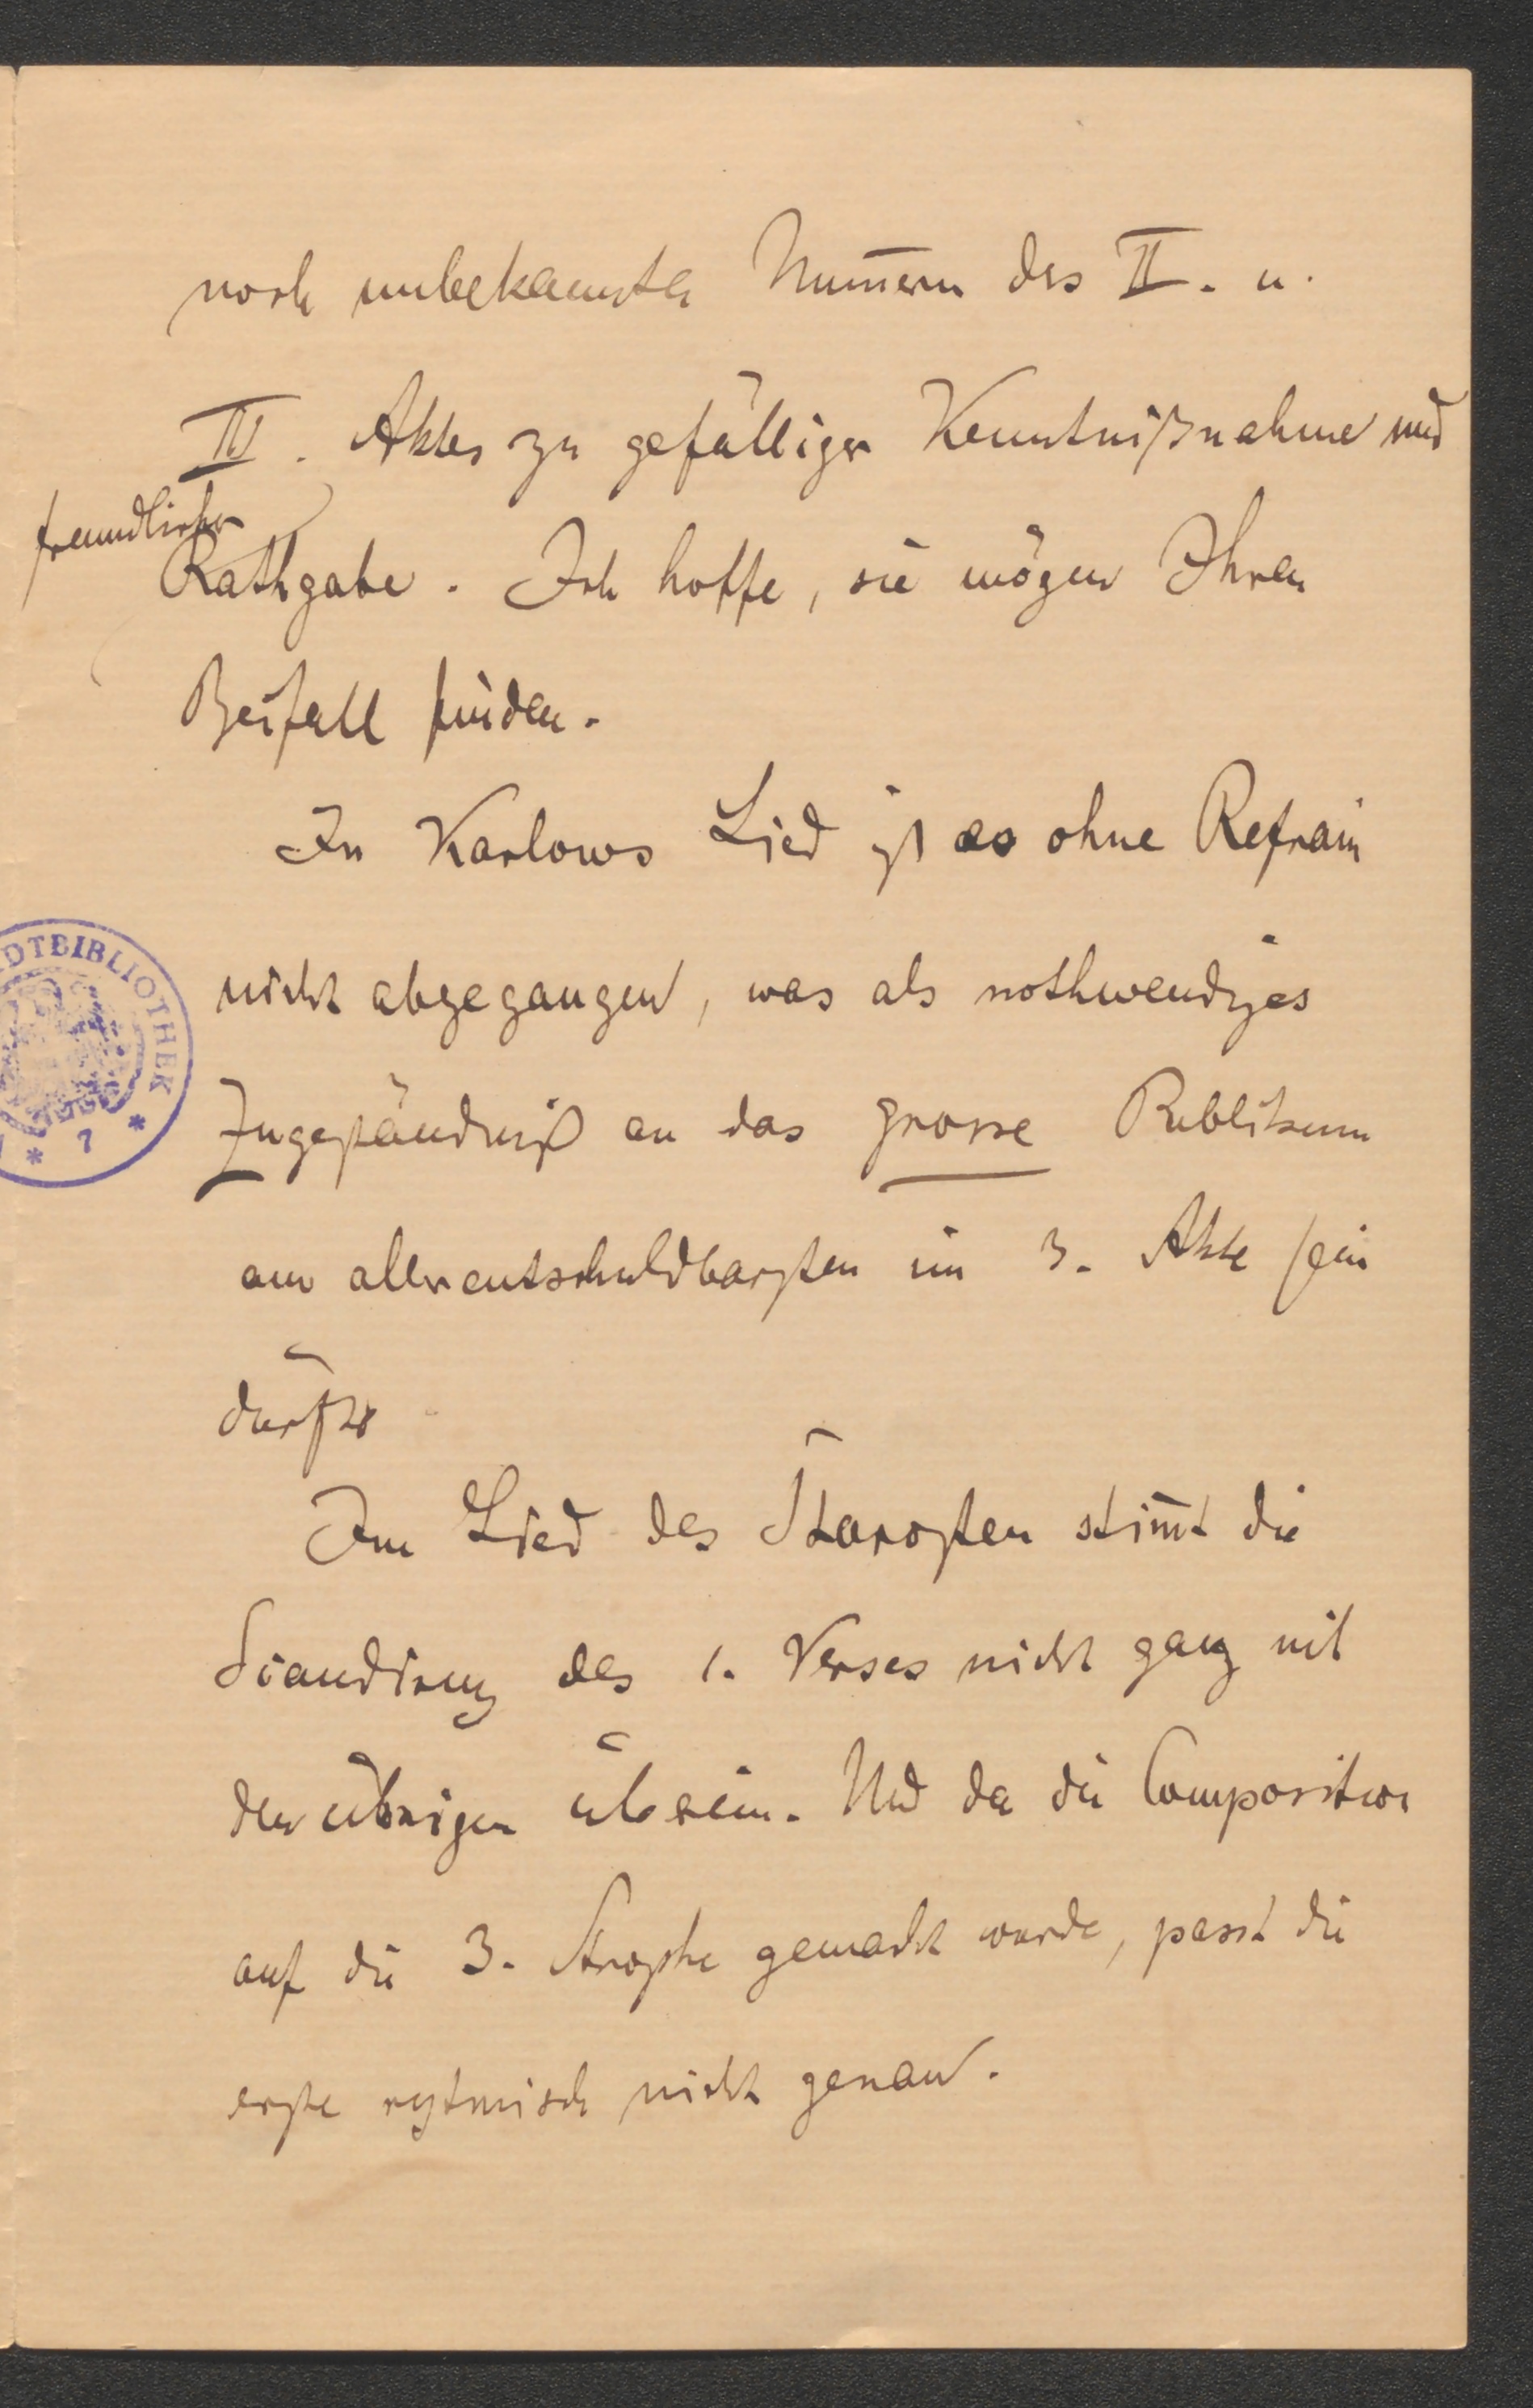 noch unbekannten Num̄ern des II. u.
III. Aktes zu gefälliger Kenntnißnahme und
freundlicher
Rathgabe. Ich hoffe, sie mögen Ihren
Beifall finden.
In Karlows Lied ist es ohne Refrain
nicht abgegangen, was als nothwendiges
Zugeständniß an das grosse Publikum
am allerentschuldbarsten im 3. Akte sein
dürfte
Im Lied des Starosten stim̄t die
Scandirung des 1. Verses nicht ganz mit
den übrigen überein. Und da die Composition
auf die 3. Strophe gemacht wurde, passt die
erste rytmisch nicht genau.
DTBIBLIOTHEK
* 7 *